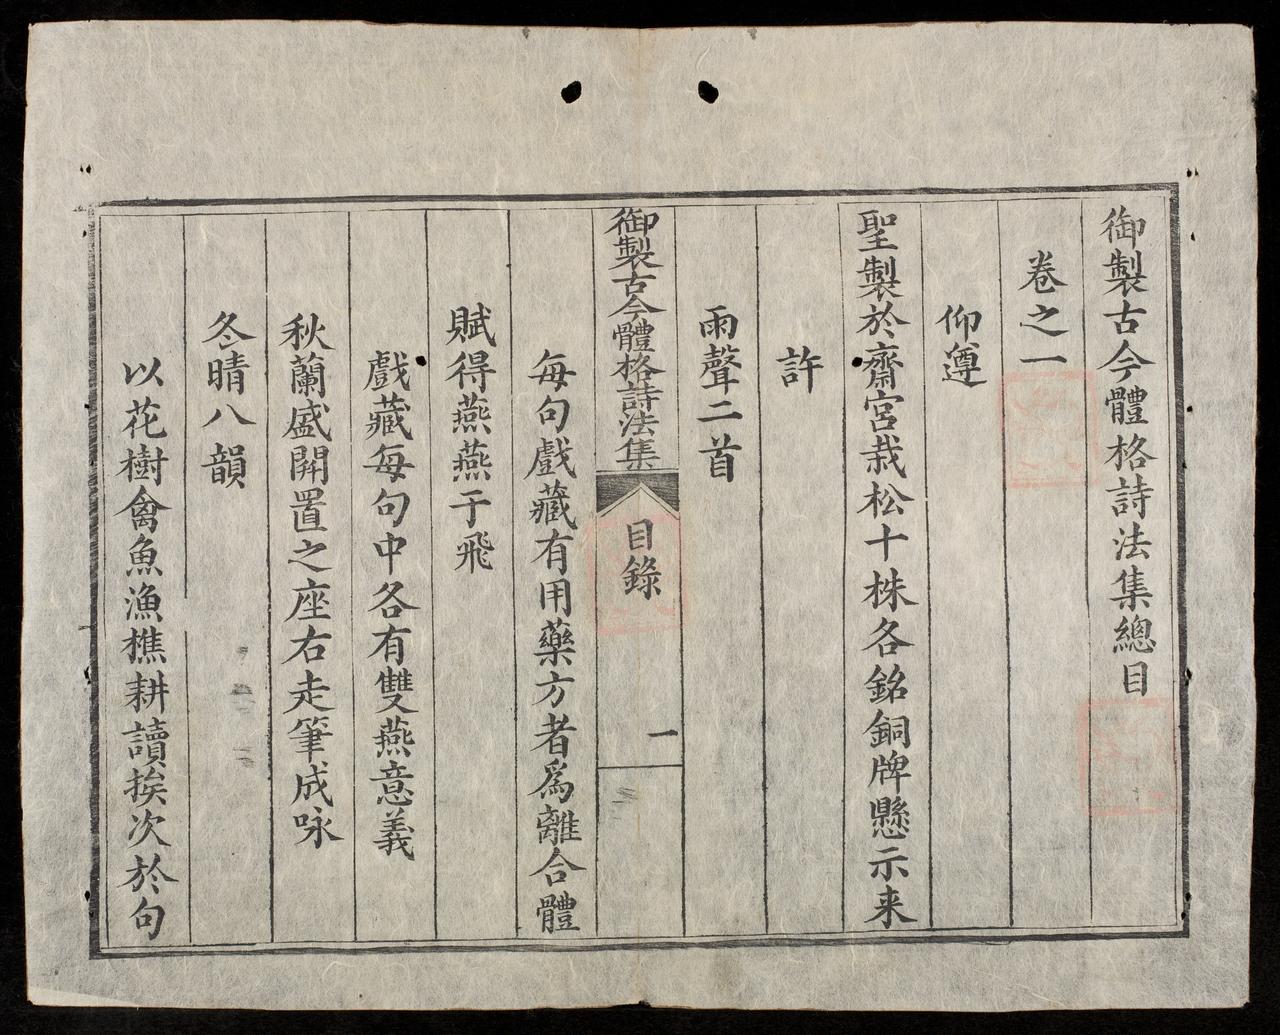 御製古今體格詩法集總目
卷之一
仰遵
聖製於齋宮栽松十株各銘銅牌懸示来
許
雨聲二首
御製古今體格詩法集 目錄 一
每句戲藏有用藥方者爲離合體
賦得燕燕于飛
戲藏每句中各有雙燕意義
秋蘭盛開置之座右走筆成咏
冬晴八韻
以花樹禽魚漁樵耕讀挨次於句